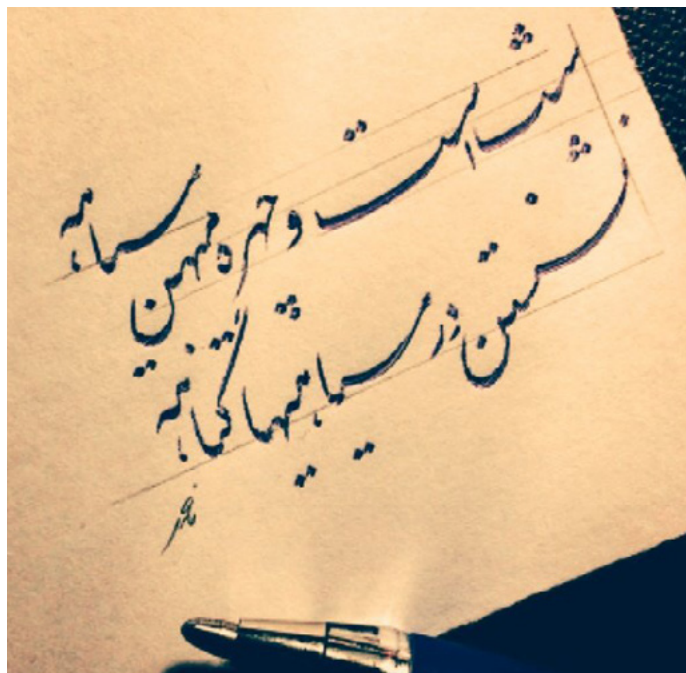 شب است و چهره میهن سیاهه
نشستن در سیاهیها گناهه